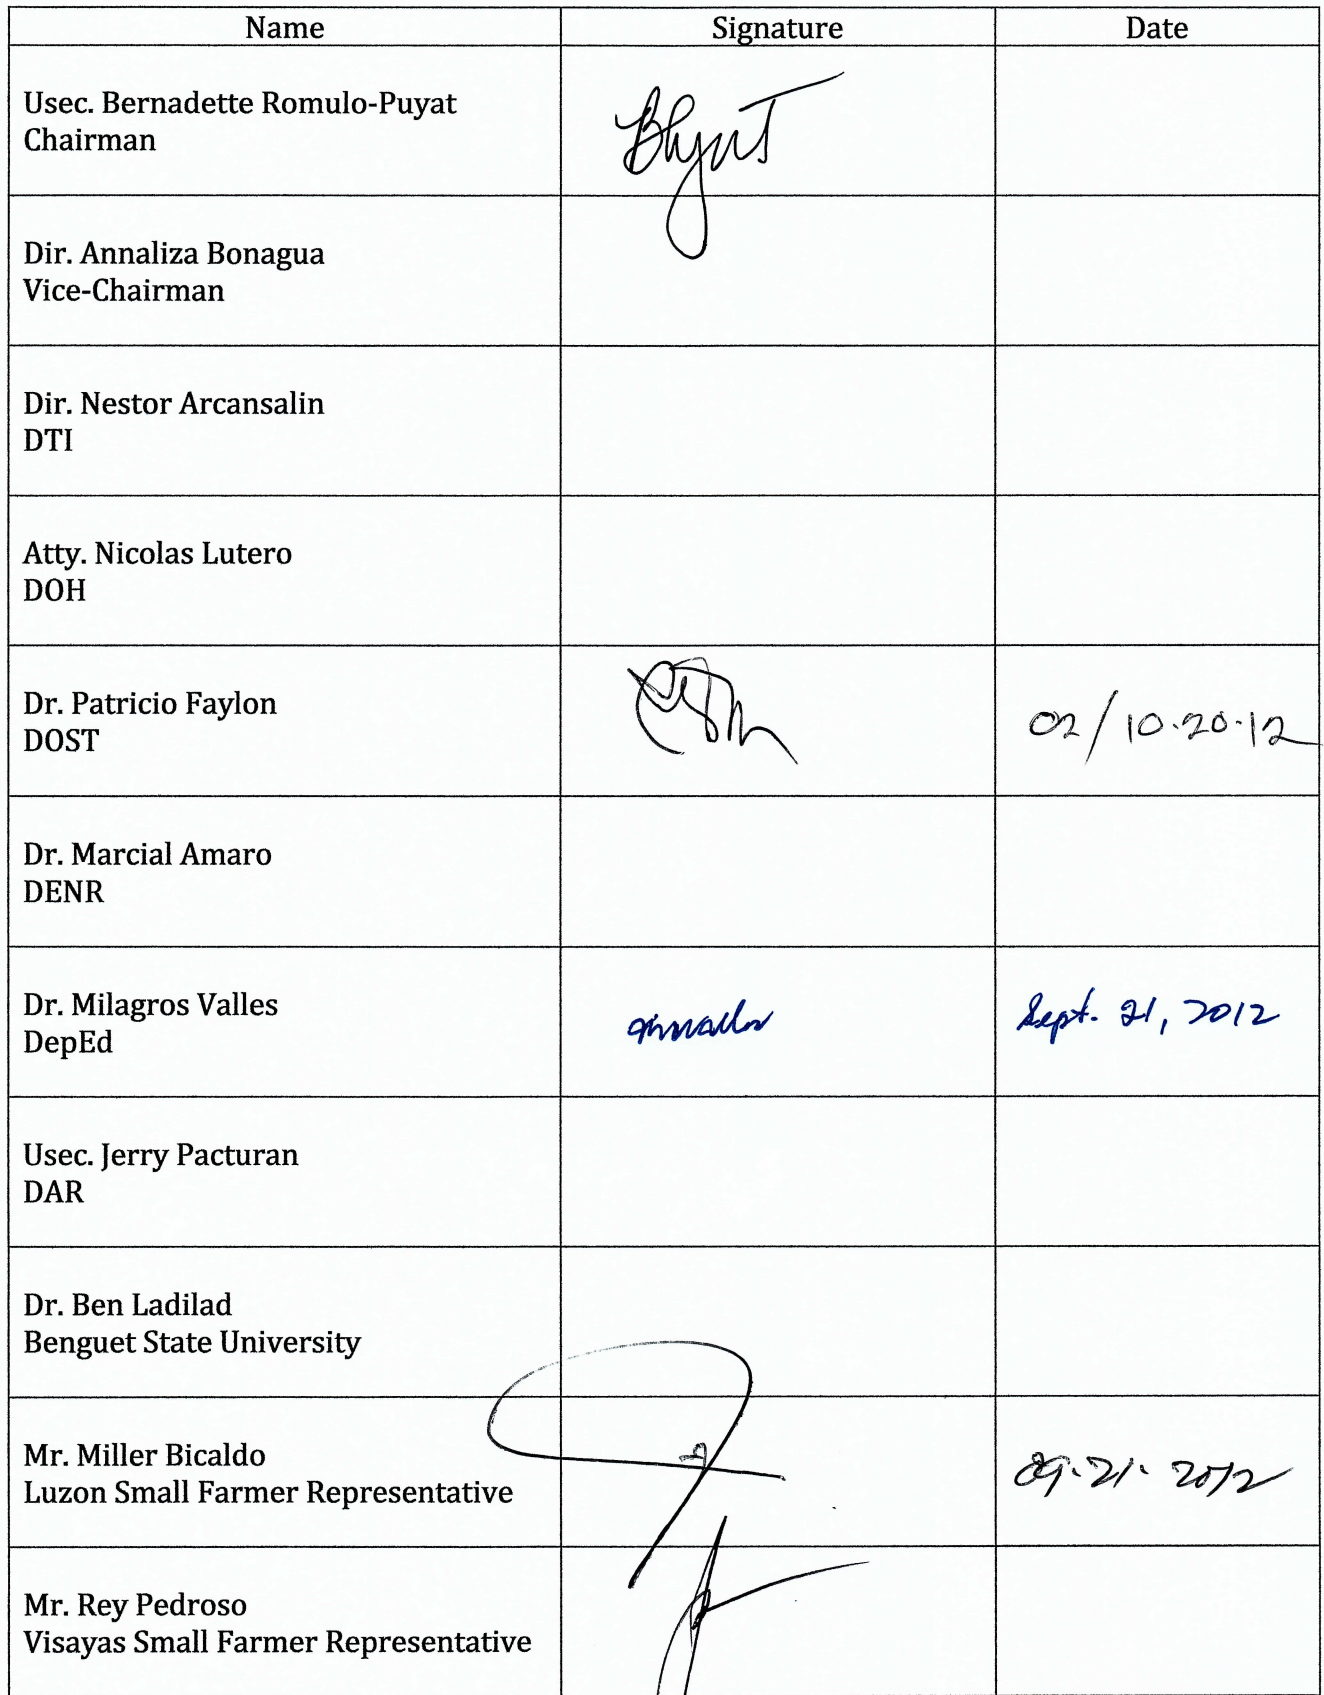 Name Signature Date
Usec. Bernadette Romulo-Puyat
Chairman
Dir. Annaliza Bonagua
Vice-Chairman
Dir. Nestor Arcansalin
DTI
Atty. Nicolas Lutero
DOH
Dr. Patricio Faylon
DOST
02/10.20.12
Dr. Marcial Amaro
DENR
Dr. Milagros Valles
DepEd
Sept. 21, 2012
Usec. Jerry Pacturan
DAR
Dr. Ben Ladilad
Benguet State University
Mr. Miller Bicaldo
Luzon Small Farmer Representative
09.21.2012
Mr. Rey Pedroso
Visayas Small Farmer Representative